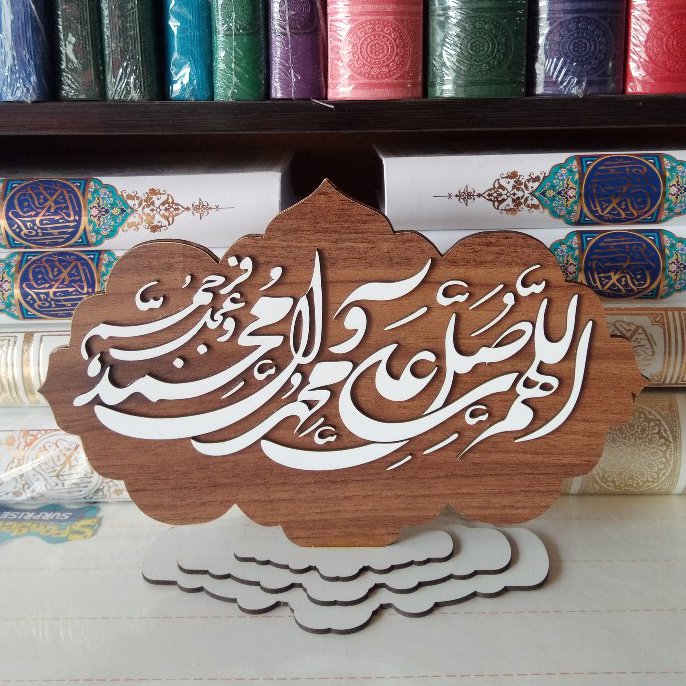 اللهم صل علی محمد و آل محمد و عجل فرجهم
SURPRISE